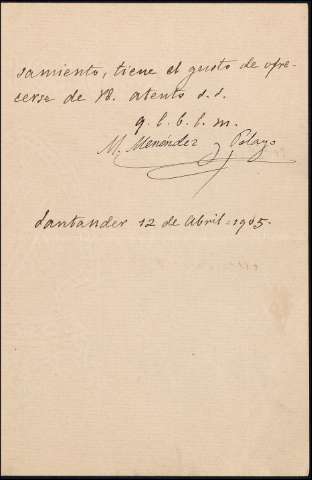 samiento, tiene el gusto de ofre-
cerse de Vd. atento s.s.
q. l. b. l. m.
M. Menéndez y Pelayo
Santander 12 de Abril-1905-